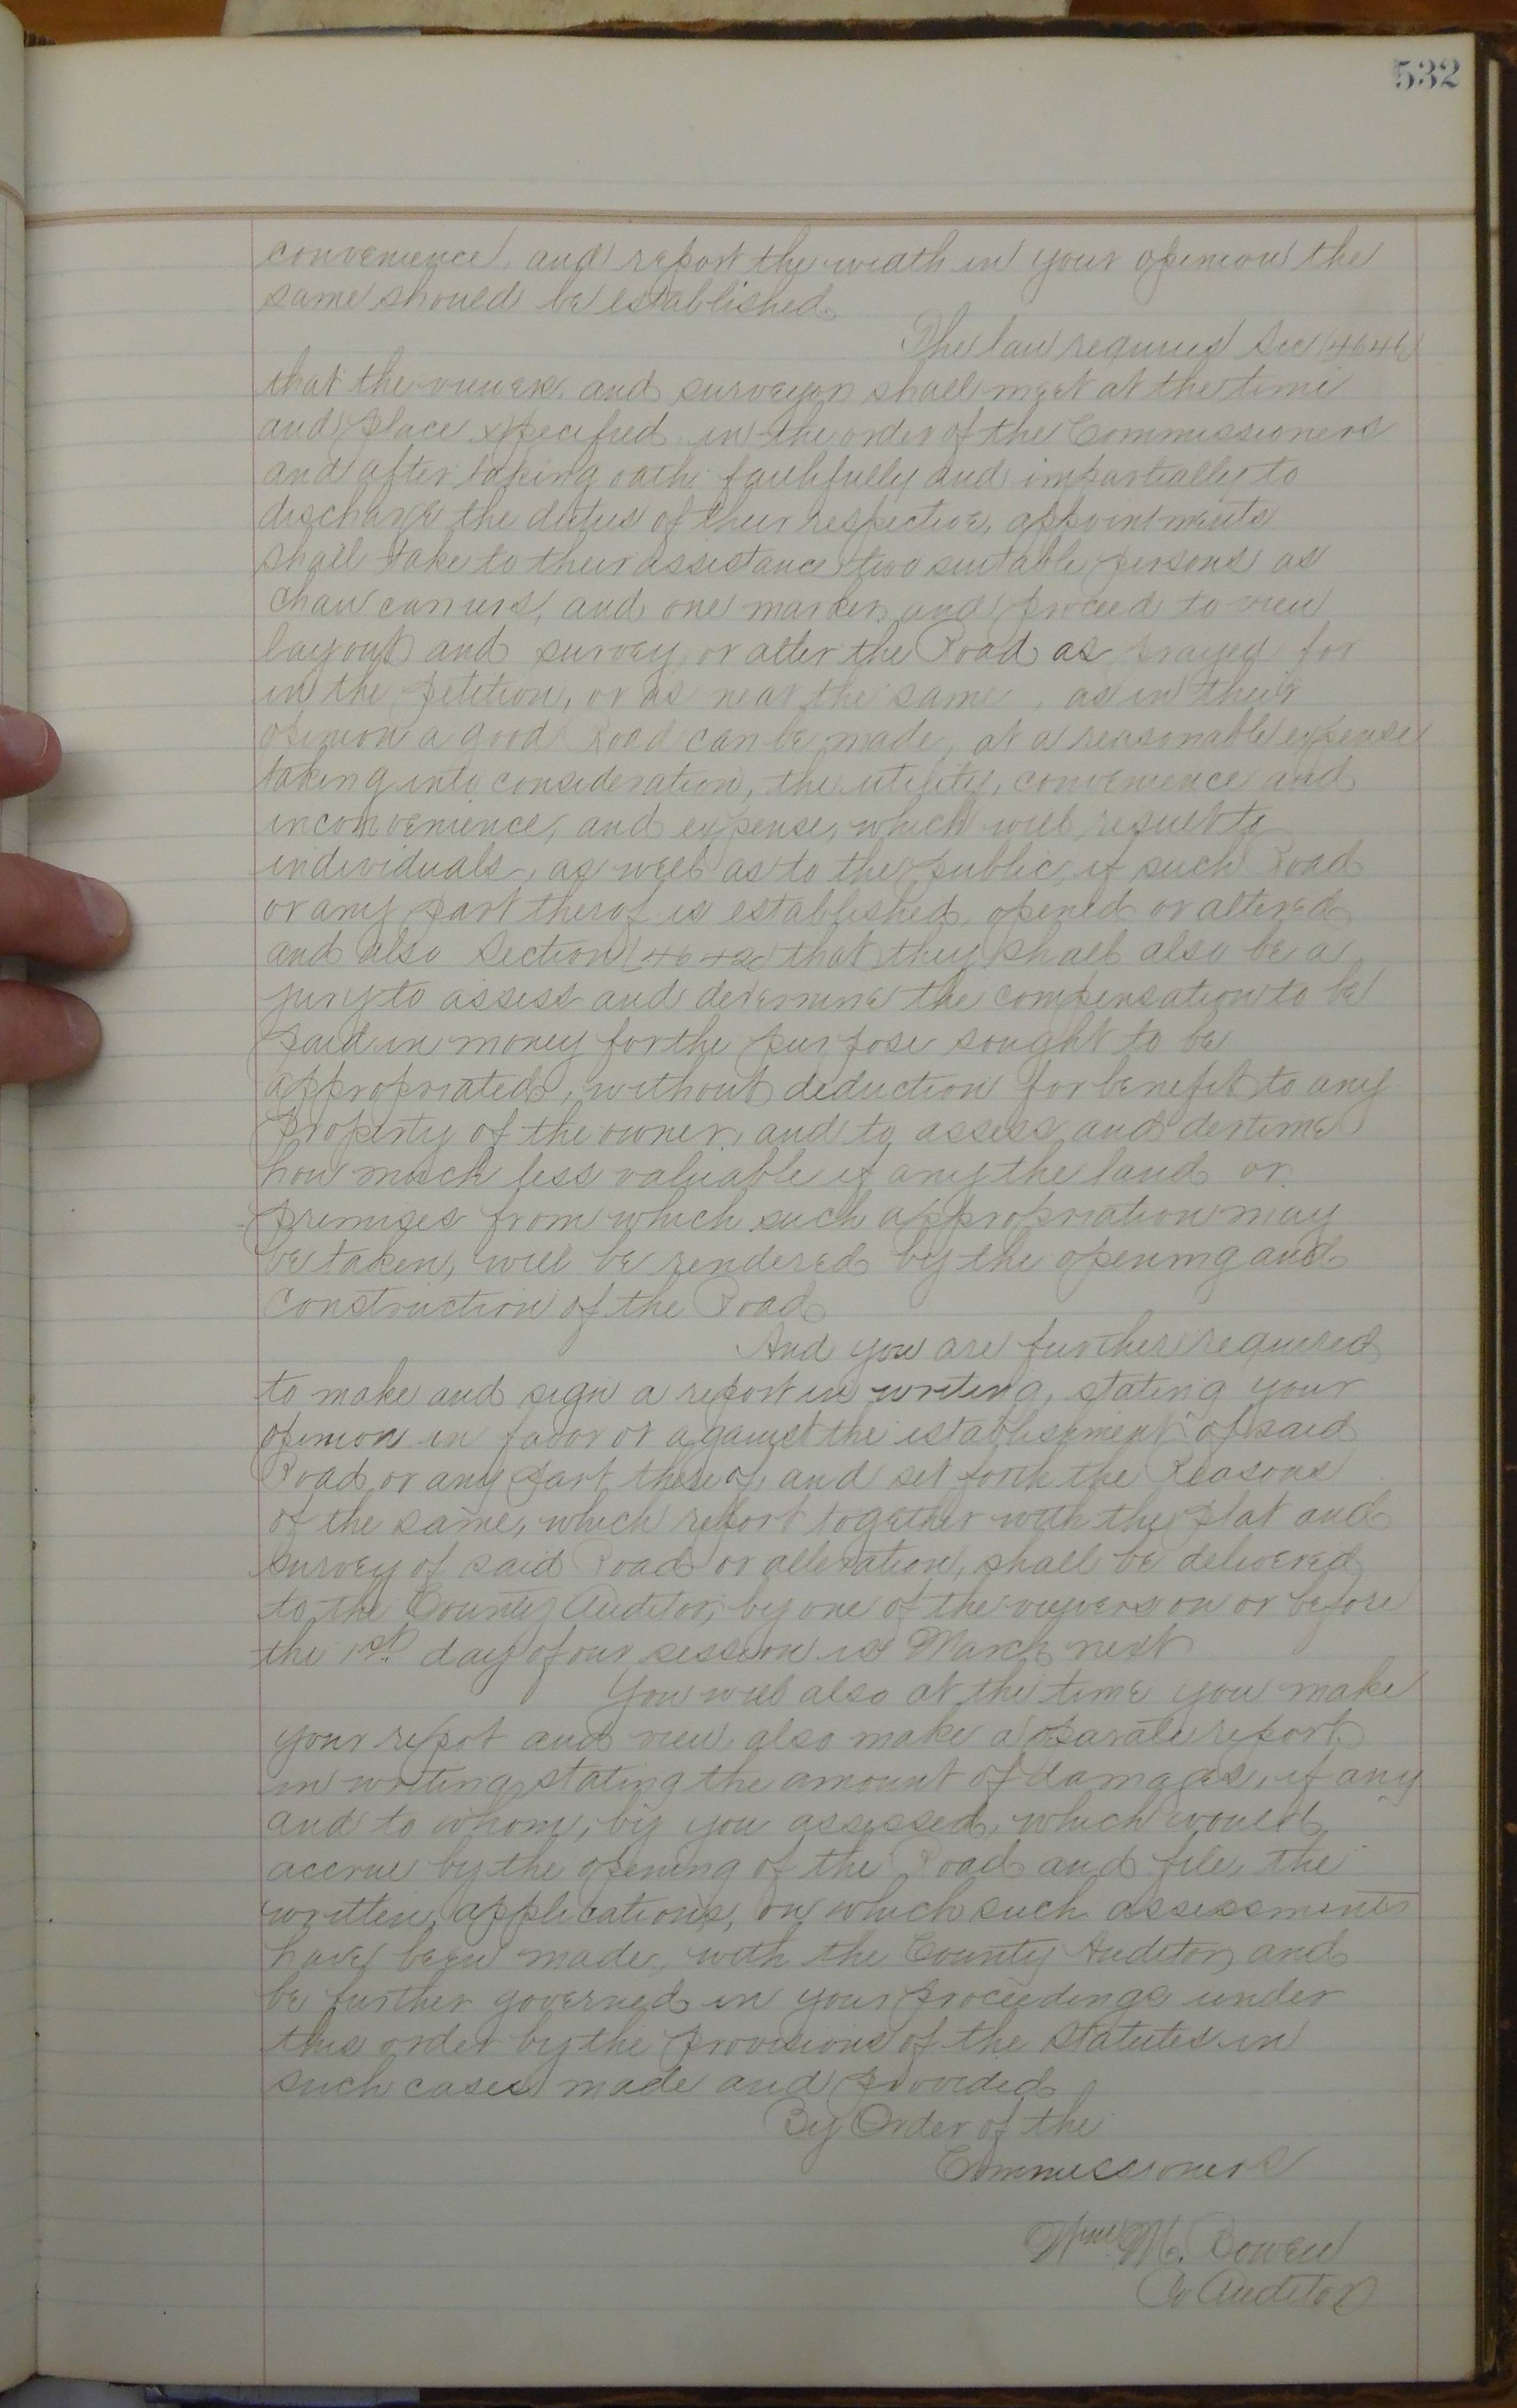 532
convenience, and report the width in your openion the
same should be established.
The law requires Sec (4646)
that the viewers and surveyor shall meet at the time
and place specified in the order of the Commissioners
and after taking oath faithfully and impartially to
discharge the duties of their respective, appointments
shall take to their assistance two suitable persons as
chain carriers, and one marker, and proceed to view
layout and survey, or alter the Road as prayed for
in the petition, or as near the same, as in their
openion a good Road can be made, at a reasonable expense
taking into consideration, the utility, convenience and
inconvenience, and expense, which will result to
individuals, as well as to the public, if such Road
or any part therof is established, opened or altered
and also Section (4642) that they shall also be a
jury to assess and determine the compensation to be
paid in money for the purpose sought to be
appropriated, without deduction for benefit to any
property of the owner, and to assess and dertime
how much less valuable if any the land or
premises from which such appropriation may
be taken, will be rendered by the opening and
construction of the Road
And you are further required
to make and sign a report in writing, stating your
openion in favor or against the establishment of said
Road or any part thereof, and set forth the Reasons
of the same, which report together with the plat and
survey of said Road or alteration, shall be delivered
to the County Auditor, by one of the viewers on or before
the 1st. day of our session in March next
You will also at the time you make
your repot and view, also make a separate report
in writing stating the amount of damages, if any
and to whom, by you assessed, which would
accrue by the opening of the Road and file, the
written, applications, on which such assessments
have been made, with the County Auditor, and
be further governed in your proceedings under
this order by the provisions of the statutes in
such cases made and provided
By Order of the
Commissioners
Wm. M. Bowen
Co Auditor